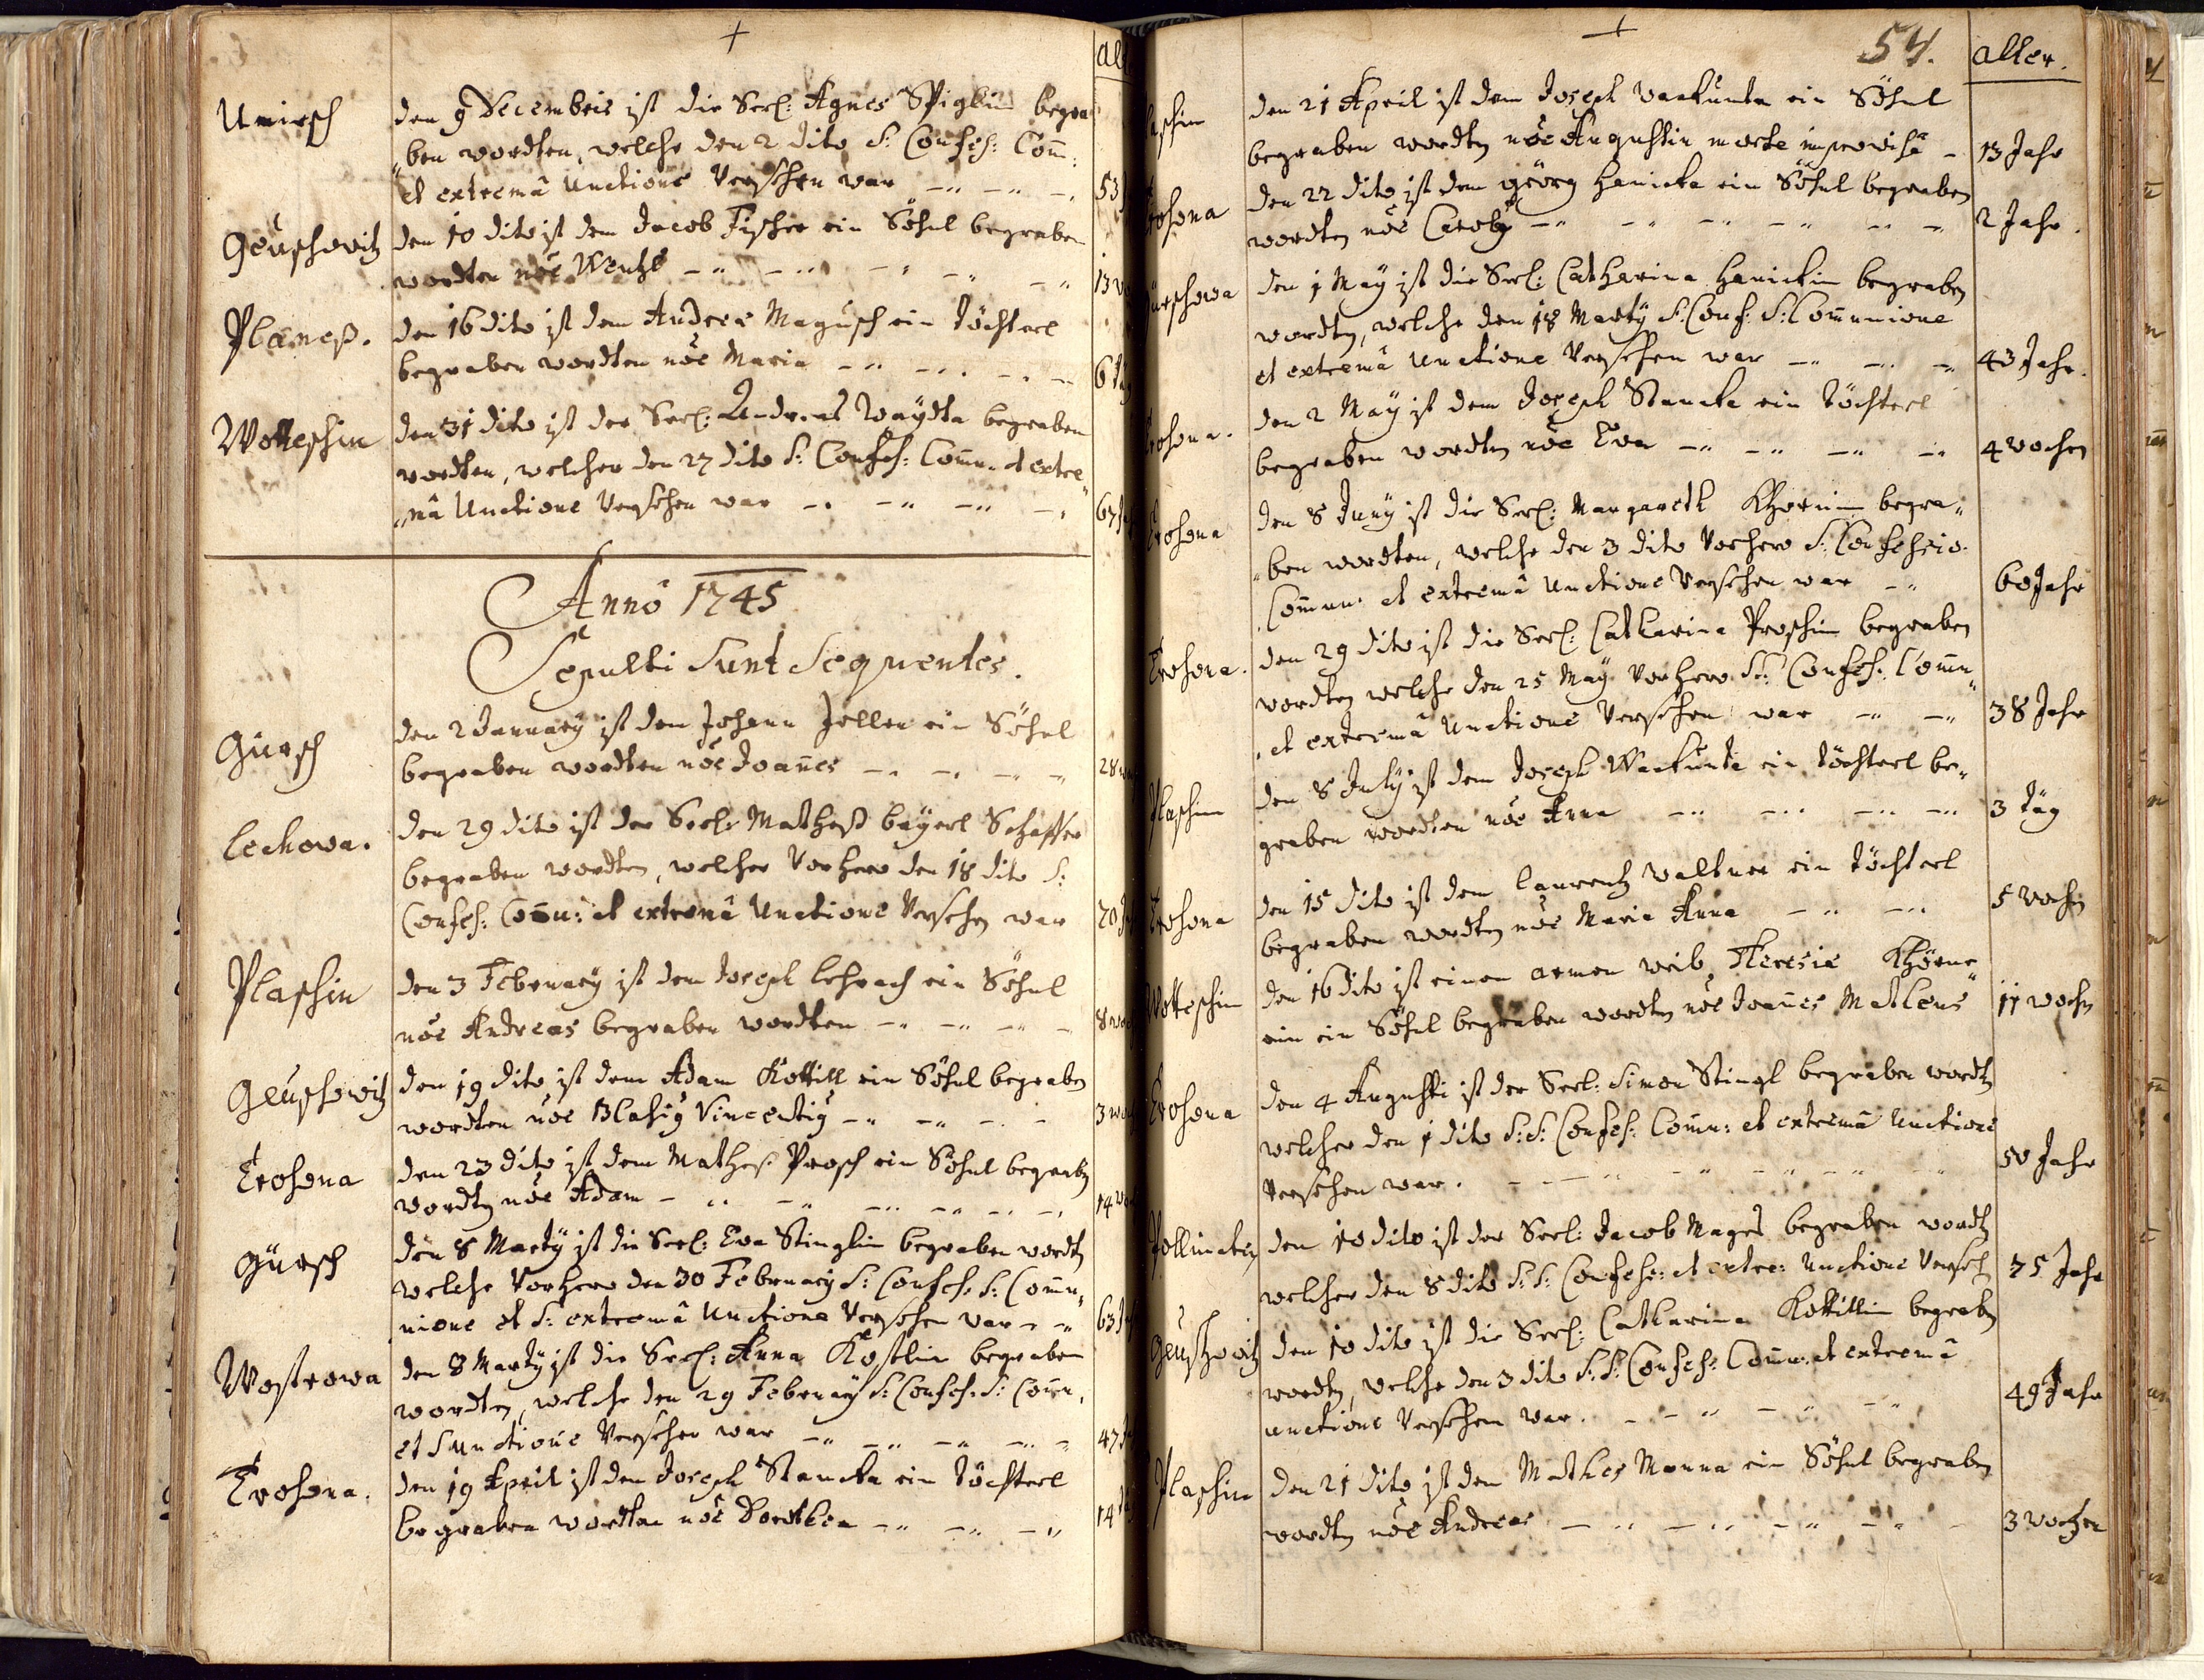 Umirsch
den 9 Decembris ist die Seel: Agnes Spiglin begra
ben wordten, welche den 2 dito S: Confeß: Com:
et extremâ Unctione Versehen war
53
Geuschowitz
den 10 dito ist dem Jacob Fischer ein Söhnl begraben
wordten nõe Wentzl
13
Planeß.
den 16 dito ist dem Andree Magusch ein Töchterl
begraben wordten nõe Maria
6
Wotteschin
den 31 dito ist der Seel: Andreas Waydta begraben
wordten, welcher den 27 dito S: Confeß: Comu: et extre
mâ Unctione Versehen war
67
Annô 1745
Sepulti Sunt Sequentes.
Gürsch
den 2 January ist dem Johann Zeller ein Söhnl
begraben wordten nõe Joañes
28
Lechowa.
den 29 dito ist der Seel: Matheß Bayerl Schaffer
begraben wordten, welcher Vorhero den 18 dito S:
Confeß: Comu: et extremâ Unctione Versehen war
70
Plaschin
den 3 February ist dem Joseph Lehrach ein Söhnl
nõe Andreas begraben wordten
8
Geuschowitz
den 19 dito ist dem Adam Kottill ein Söhnl begraben
wordten nõe Blasig Vincentig
3
Trohona
den 23 dito ist dem Matheß Prosch ein Söhnl begraben
wordten nõe Adam
14
Gürsch
den 8 Marty ist die Seel: Eva Stinglin begraben wordten
welche Vorhero den 30 February S: Confeß: S: Comu
nione et S: extremâ Unctione Versehen war
63
Wostrowa
den 8 Marty ist die Seel: Anna Köstlin begraben
wordten, welche den 29 February S: Confeß: S: Comu.
et S unctione Versehen war
47
Trohona.
den 19 April ist dem Joseph Stancka ein Töchterl
begraben wordten nõe Dorothea
14
54.
alter.
den 21 April ist dem Joseph Warkunta ein Söhnl
begraben wordten nõe Augustin morte improvisâ
13 Jahr
den 22 dito ist dem Georg Hanicka ein Söhnl begraben
wordten nõe Carolg
2 Jahr.
den 1 May ist die Seel: Catharina Hanickin begraben
wordten, welche den 18 Marty S: Conf: S: Communione
et extremâ Unctione Versehen war
43 Jahr.
den 2 May ist dem Joseph Stancka ein Töchterl
begraben wordten nõe Eva
4 wochen
Trohona
den 8 Juny ist die Seel: Margareth Khornin begra
ben wordten, welche den 3 dito Vorhero S: Confessio.
Commu: et extremâ Unctione Versehen war
60 Jahr
Trohona.
den 29 dito ist die Seel: Catharina Proschin begraben
wordten welche den 25 May Vorhero S: Confeß: Comu
et extremâ Unctione Versehen war
38 Jahr
Plaschin
den 8 July ist dem Joseph Warkunta ein Töchterl be
graben wordten nõe Anna
3 Täg
Trohona
den 15 dito ist dem Laurentz Waltner ein Töchterl
begraben wordten nõe Maria Anna
5 wochen
Wotteschin
den 16 dito ist einen armen weib, Theresie Khörne
rin ein Söhnl begraben wordten nõe Joañes Matheus
11 wochen
Trohona
den 4 Augusti ist der Seel: Simon Stingl begraben wordten
welcher den 1 dito S: S: Confeß: Comu: et extremâ Unctione
Versehen war.
50 Jahr
den 10 dito ist der Seel: Jacob Mages begraben wordten
welcher den 8 dito S: S: Confeß: et extre: Unctione Versehen
75 Jahr
Geuschowitz
den 10 dito ist die Seel: Catharina Kottillin begraben
wordten, welche den 3 dito S: S: Confeß: Comu: et extremâ
unctione Versehen war.
49 Jahr
Plaschin
den 21 dito ist dem Mathes Manna ein Söhnl begraben
wordten nõe Andreas
3 wochen